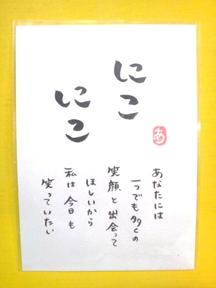 にこ
にこ
あなたには
一つでも多くの
笑顔と出会って
ほしいから
私は今日も
笑っていたい